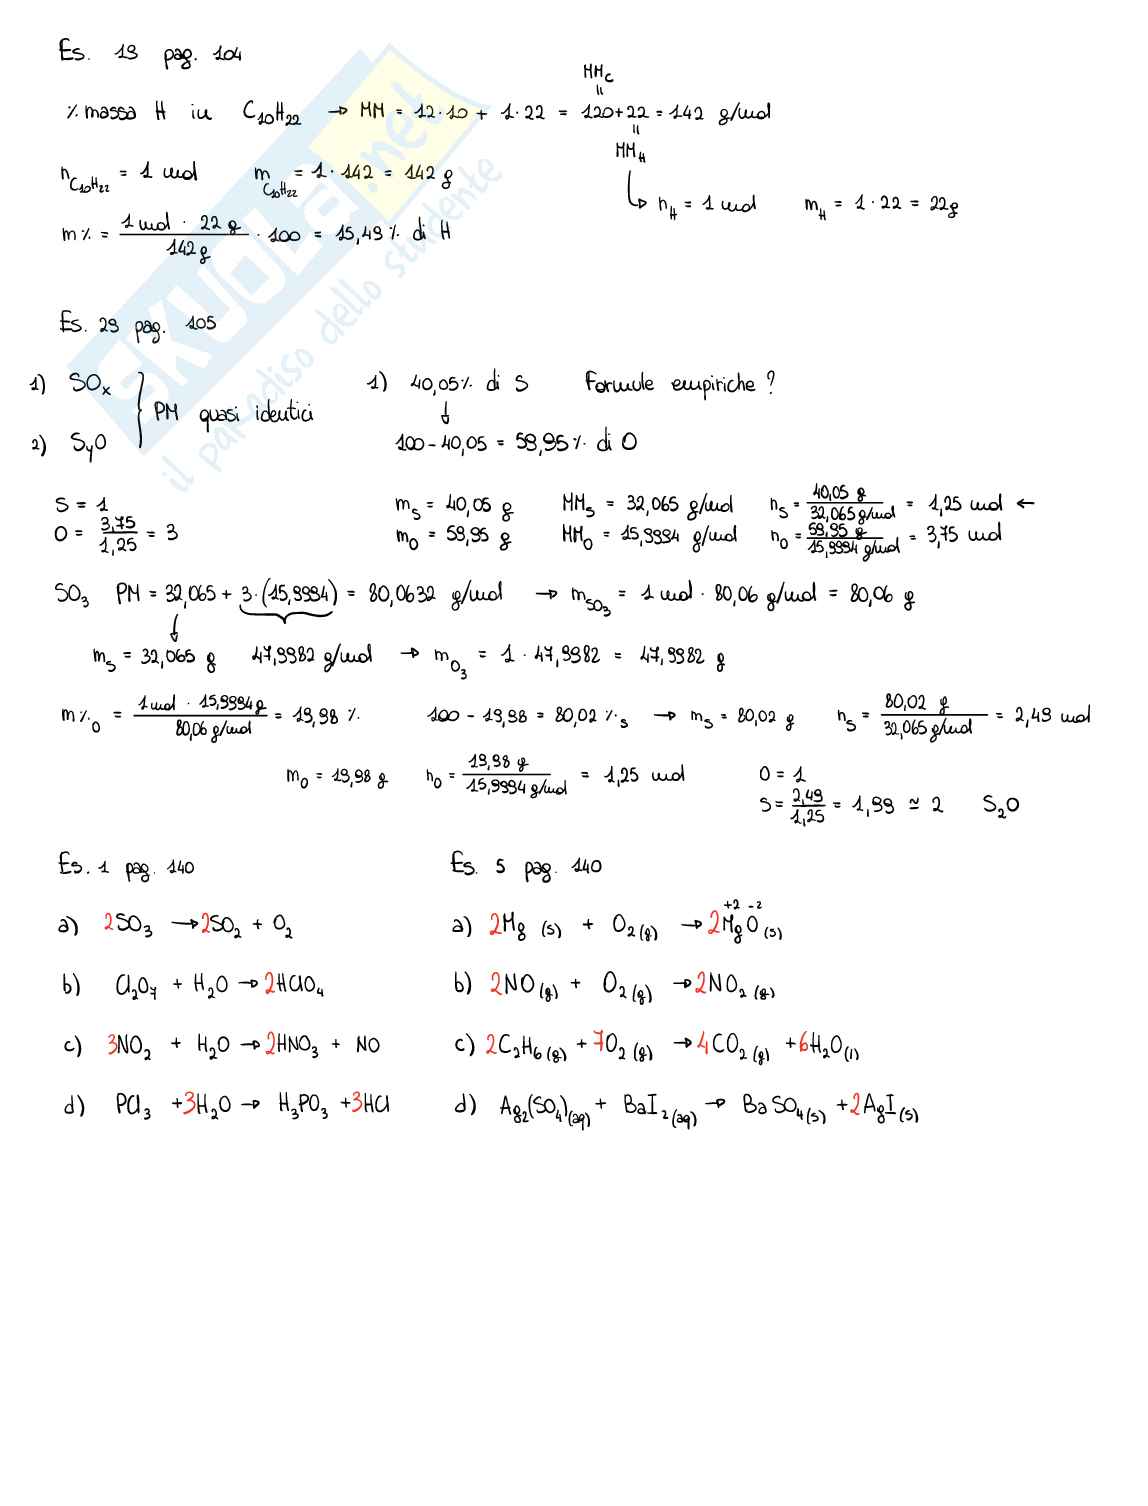 Es. 19 pag. 104
MM_C
=
% massa H in C₁₀H₂₂ → MM = 12·10 + 1·22 = 120+22 = 142 g/mol
=
MM_H
n_C₁₀H₂₂ = 1 mol m_C₁₀H₂₂ = 1·142 = 142 g
↳ n_H = 1 mol m_H = 1·22 = 22g
m% = (1 mol · 22 g)/(142 g) · 100 = 15,49 % di H
Es. 29 pag. 105
1) SOₓ
2) SᵧO
} PM quasi identici
1) 40,05% di S Formule empiriche?
↓
100 - 40,05 = 59,95 % di O
S = 1
O = 3,75/1,25 = 3
m_S = 40,05 g MM_S = 32,065 g/mol n_S = (40,05 g)/(32,065 g/mol) = 1,25 mol ←
m_O = 59,95 g MM_O = 15,9994 g/mol n_O = (59,95 g)/(15,9994 g/mol) = 3,75 mol
SO₃ PM = 32,065 + 3·(15,9994) = 80,0632 g/mol → m_SO₃ = 1 mol · 80,06 g/mol = 80,06 g
↓
m_S = 32,065 g 47,9982 g/mol → m_O₃ = 1 · 47,9982 = 47,9982 g
m%_O = (1 mol · 15,9994 g)/(80,06 g/mol) = 19,98 % 100 - 19,98 = 80,02 %_S → m_S = 80,02 g n_S = (80,02 g)/(32,065 g/mol) = 2,49 mol
m_O = 19,98 g n_O = (19,98 g)/(15,9994 g/mol) = 1,25 mol
O = 1
S = 2,49/1,25 = 1,99 ≃ 2 S₂O
Es. 1 pag. 140
a) 2SO₃ → 2SO₂ + O₂
b) Cl₂O₇ + H₂O → 2HClO₄
c) 3NO₂ + H₂O → 2HNO₃ + NO
d) PCl₃ + 3H₂O → H₃PO₃ + 3HCl
Es. 5 pag. 140
+2 -2
a) 2Mg (s) + O₂ (g) → 2MgO (s)
b) 2NO (g) + O₂ (g) → 2NO₂ (g)
c) 2C₂H₆ (g) + 7O₂ (g) → 4CO₂ (g) + 6H₂O (l)
d) Ag₂(SO₄) (aq) + BaI₂ (aq) → BaSO₄ (s) + 2AgI (s)
SKUOLA.net
il paradiso dello studente